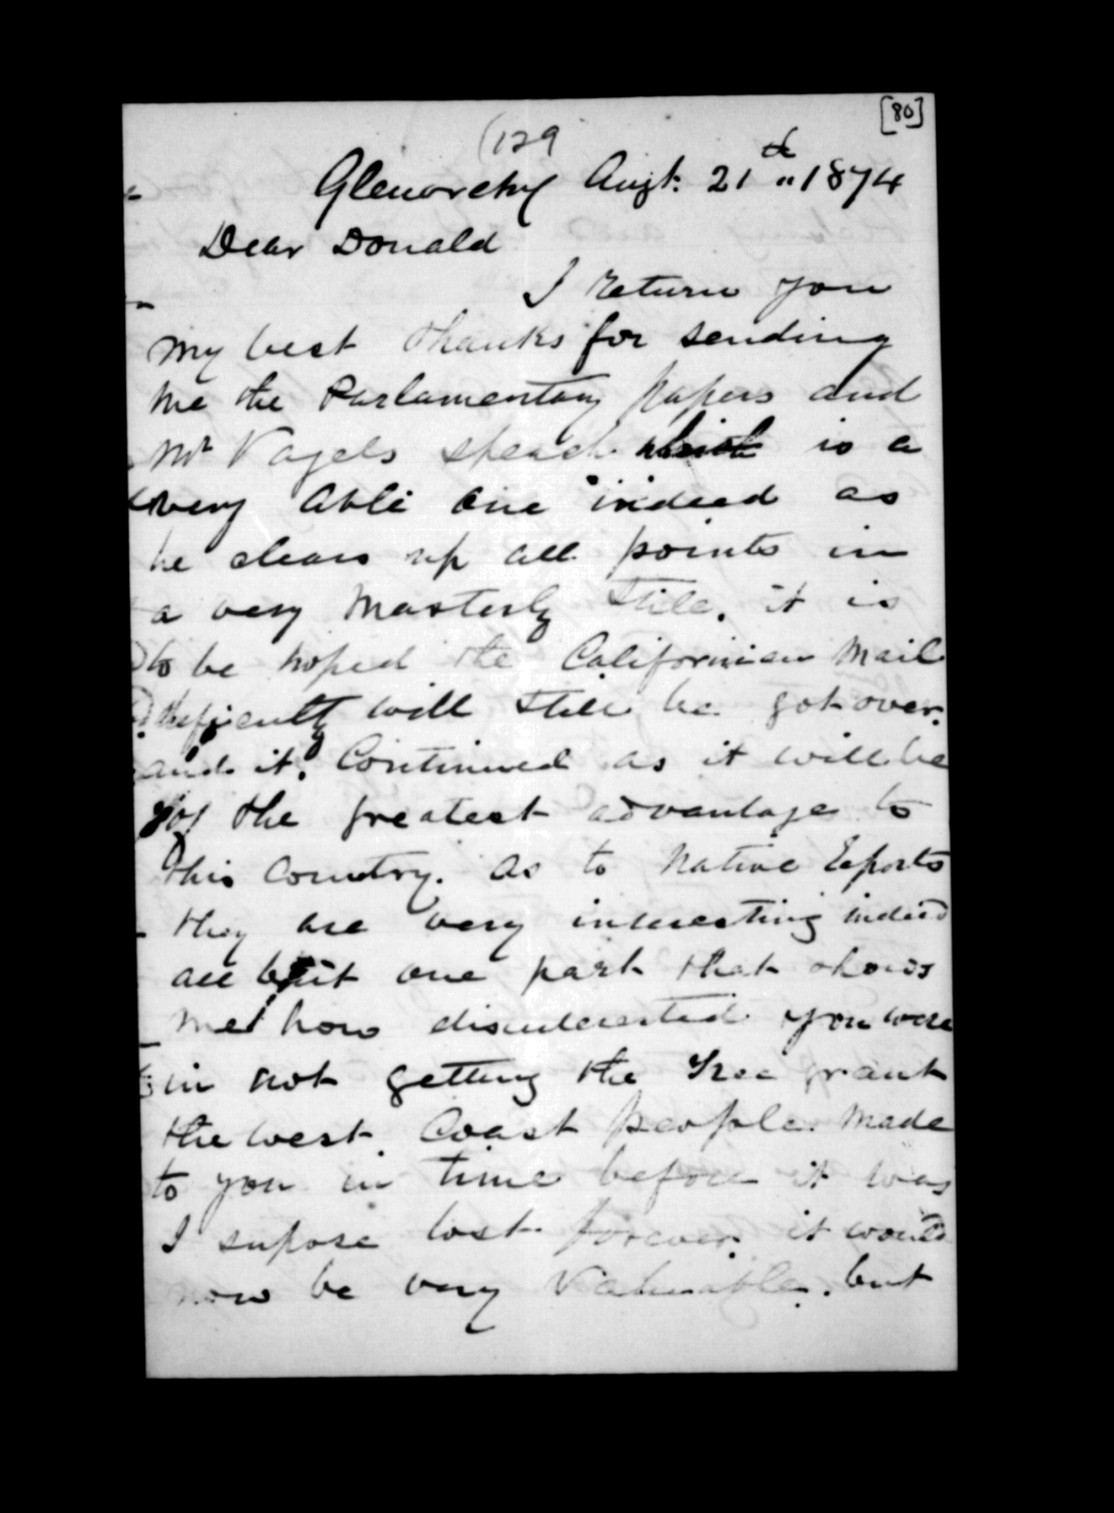 [80]
(129
Glenorchy Augt. 21th " 1874
Dear Donald
I return you
my best thanks for sending
me the Parlamentary papers and
Mr Vogels speach which is a
very able one indeed as
he clears up all points in
a very masterly stile. it is
to be hoped the Californian Mail
will still be got over.
and it. Continued as it will be
of the greatest advantage to
this Country. As to Native Reports
they are very interesting indeed
all but one part that shows
me how disinterested you were
in not getting the Free grant
the west Coast people made
to you in time before it was
I supose lost forever. it would
now be very Valuable. but